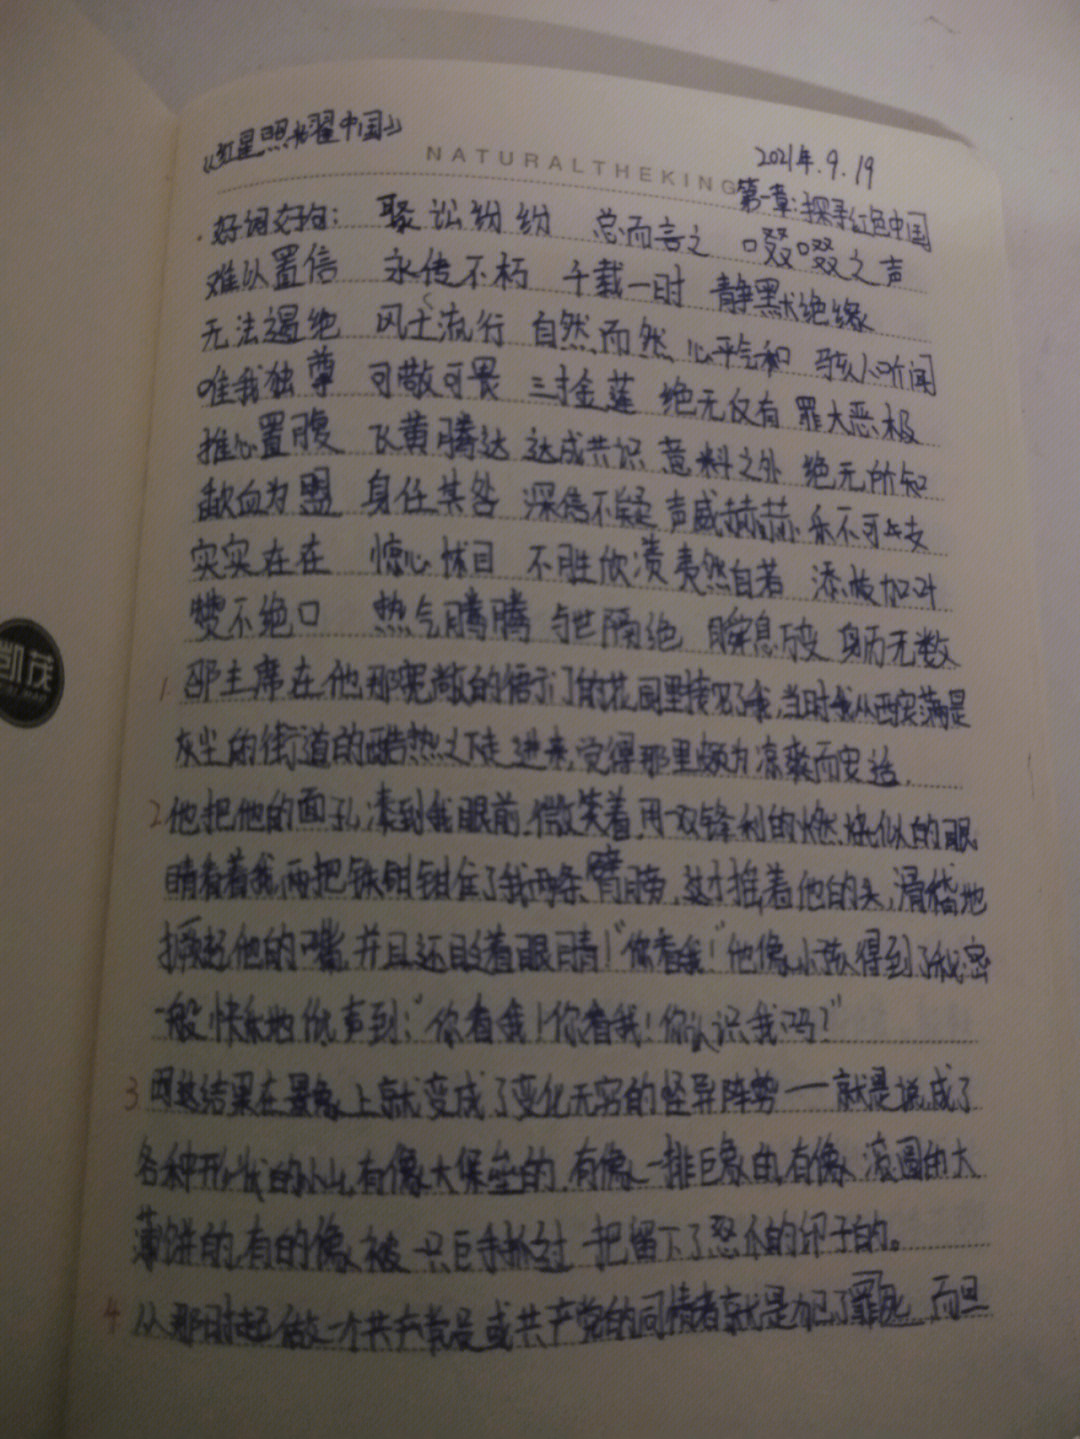 《红星照耀中国》
NATURALTHEKING
2021年.9.19
第一章:探寻红色中国
好词好句: 聚讼纷纷 总而言之 啜啜之声
难以置信 永传不朽 千载一时 静默绝缘
无法遏绝 风土流行 自然而然 心平气和 骇人听闻
唯我独尊 可敬可畏 三寸金莲 绝无仅有 罪大恶极
推心置腹 飞黄腾达 达成共识 意料之外 绝无所知
歃血为盟 身任其咎 深信不疑 声威赫赫 永不可
实实在在 惊心怵目 不胜 夷然自若 添枝加叶
赞不绝口 热气腾腾 与世隔绝 瞬息万变 无数
1. 邵主席在他那宽敞的衙门的花园里接见了我,当时我从西安满是
灰尘的街道的酷热之下走进来,觉得那里颇为凉爽而安适.
2 他把他的面孔凑到我眼前,微笑着,用一双锋利的燃烧似的眼
睛看着我,两把铁钳钳住了我两条臂膀,这才摇着他的头,滑稽地
撅起他的嘴,并且还眨着眼睛!"你看我!"他像小孩得到了秘密
一般快乐地低声到:"你看我!你看我!你认识我吗?"
3 因这结果在景象上就变成了变化无穷的怪异阵势——就是说成了
各种形状的小山,有像大堡垒的,有像一排巨象的,有像滚圆的大
薄饼的,有的像被一只巨手抓过一把留下了忿怒的印子的。
4 从那时起做一个共产党员或共产党的同情者就是犯了罪死,而且
凯茂